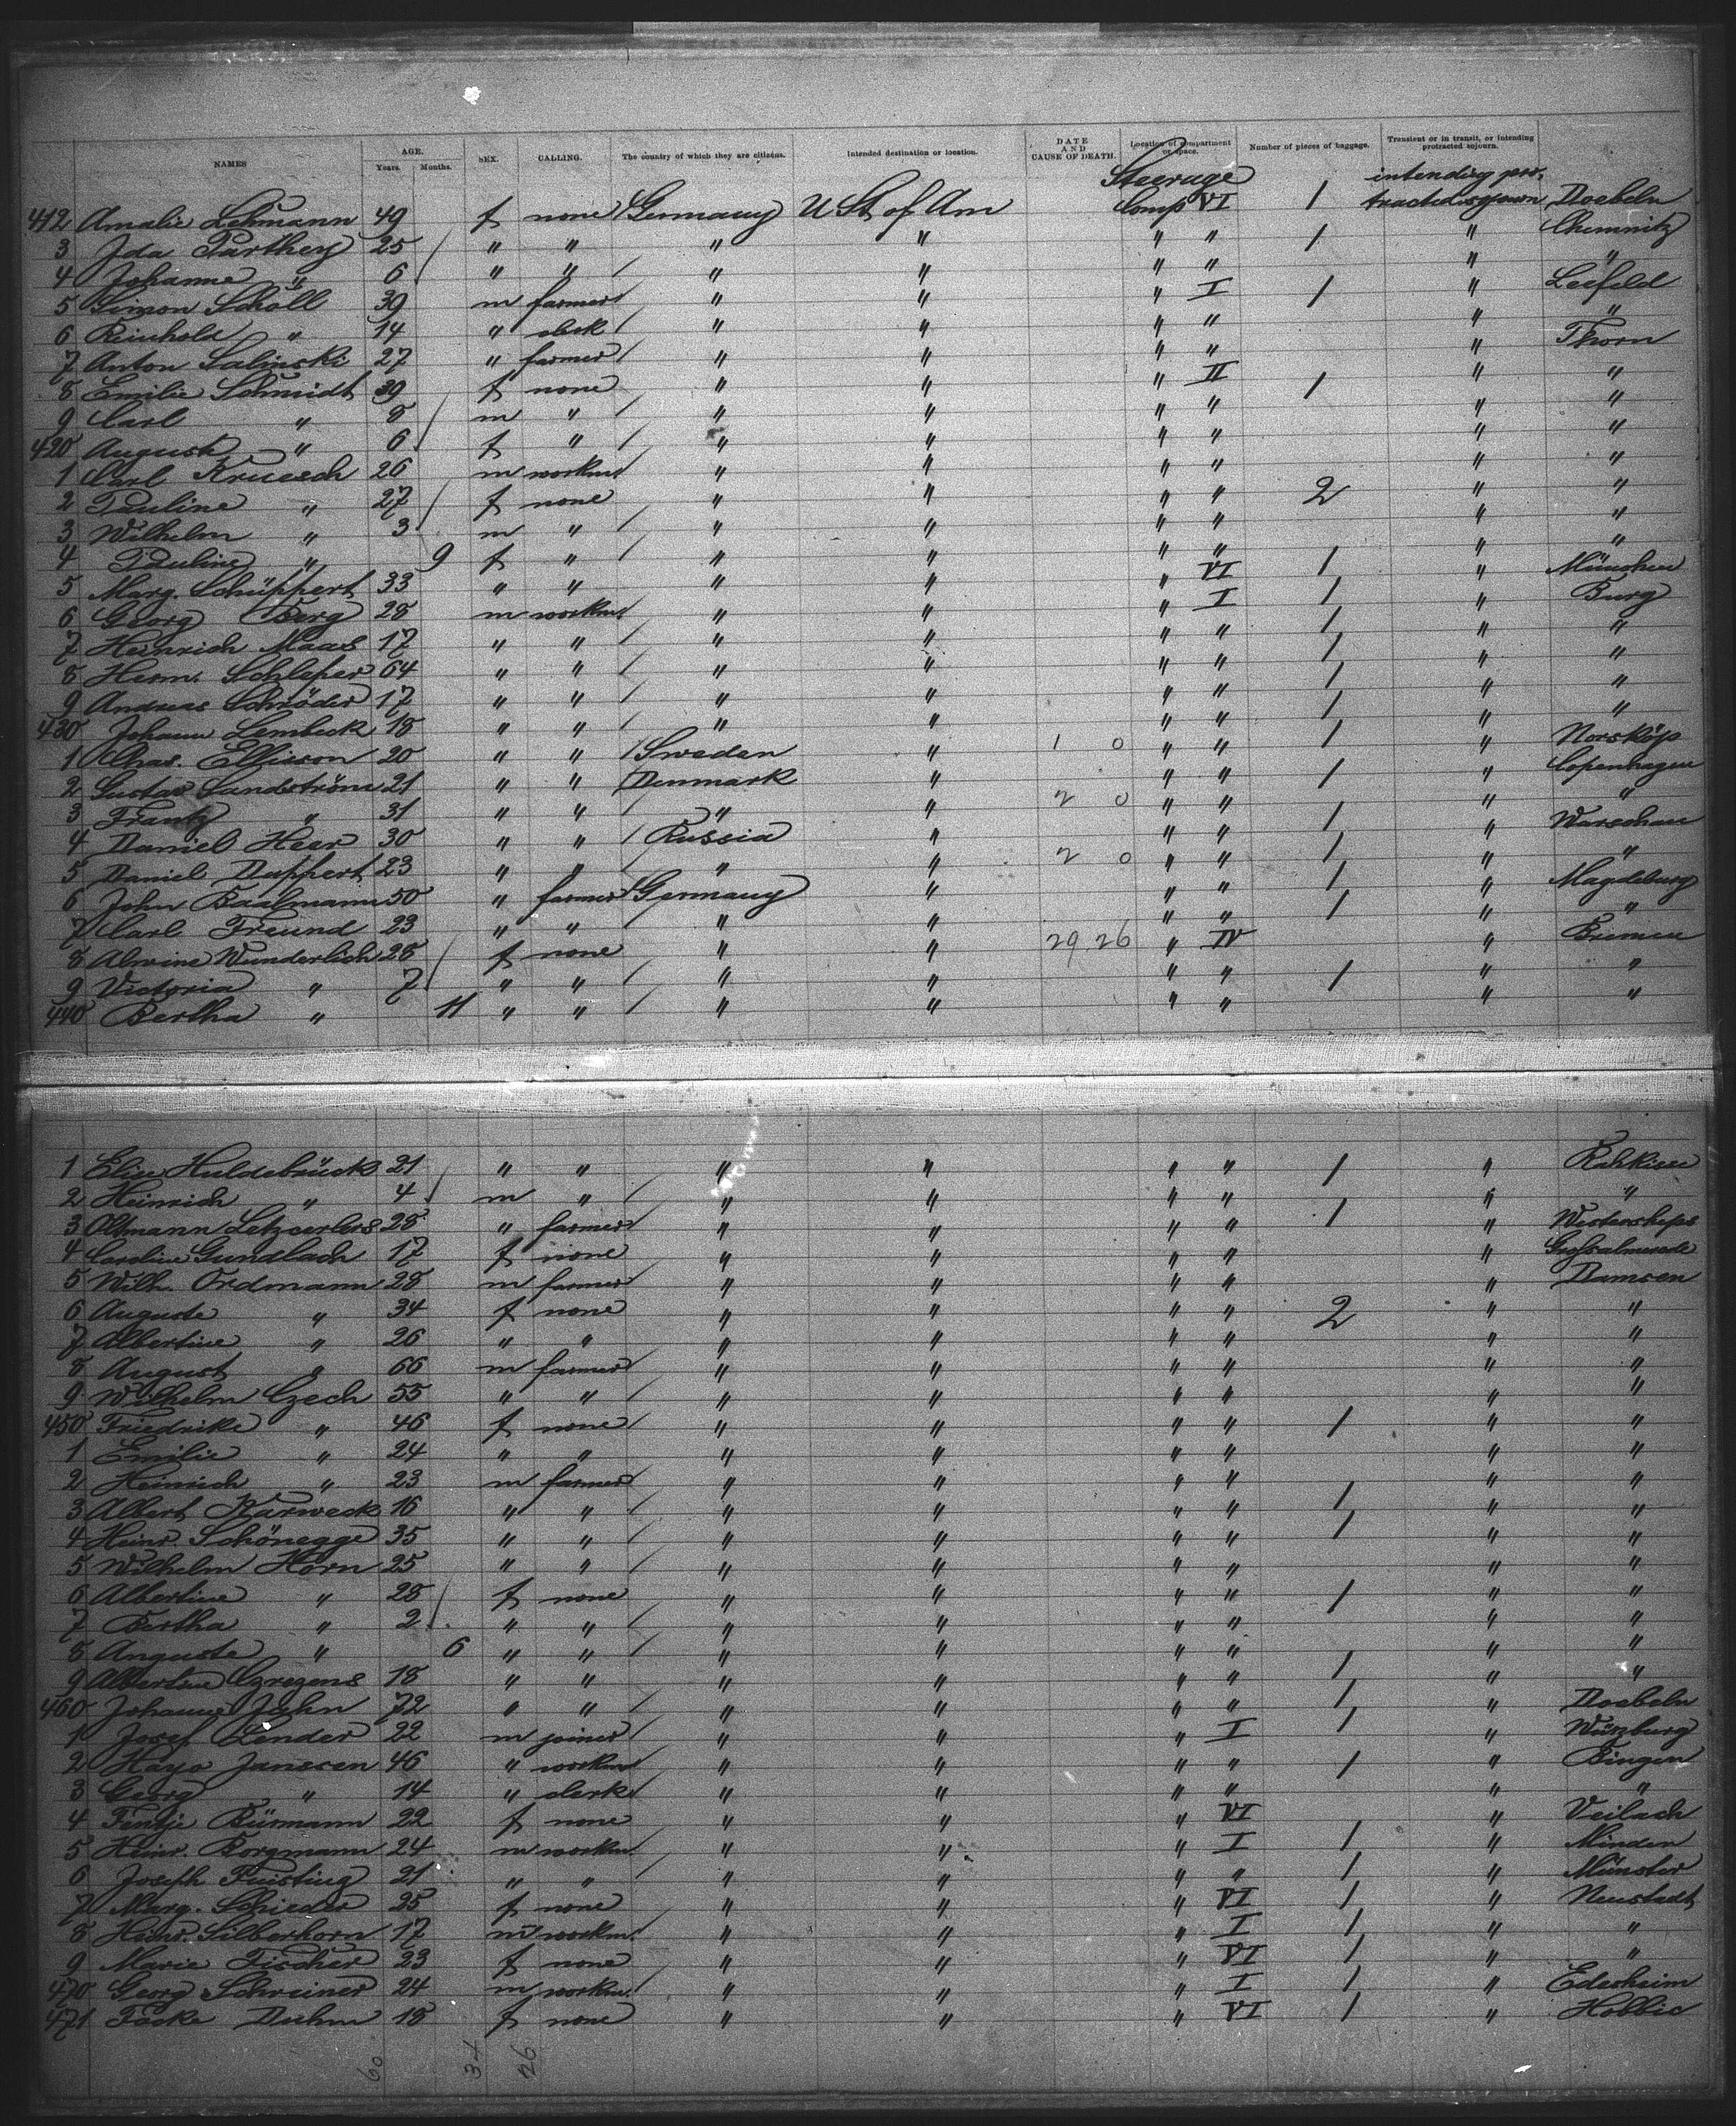 NAMES AGE. Years. Months. SEX. CALLING. The country of which they are citizens. Intended destination or location. DATE AND CAUSE OF DEATH. Location of compartment or space. Number of pieces of baggage. Transient or in transit, or intending protracted sojourn.
412 Amalie Lehmann 49 f none Germany U St of Am Steerage Comp VI 1 intending protracted sojourn Doebeln
3 Ida Parthey 25 " " " " " " 1 " Chemnitz
4 Johanne " 6 " " " " " " " "
5 Simon Scholl 39 m farmer " " " I 1 " Leefeld
6 Reinhold " 14 " " " " " " "
7 Anton Salinski 27 " farmer " " " " " Thorn
8 Emilie Schmidt 39 f none " " " II 1 " "
9 Carl " 8 m " " " " " " "
420 August " 6 f " " " " " " "
1 Carl 26 m workm " " " " " "
2 Pauline " 27 f none " " " " 2 " "
3 Wilhelm " 3 m " " " " " " "
4 Pauline " 9 f " " " " " " "
5 Marg. Schüppert 33 " " " " " VI 1 " München
6 Georg Berg 28 m workm " " " I 1 " Burg
7 Heinrich Maas 17 " " " " " " 1 " "
8 Herm. Schleper 64 " " " " " " 1 " "
9 Andreas Schröder 17 " " " " " " 1 " "
430 Johann Lembeck 18 " " " " " " 1 " "
1 Chas. Ellisson 20 " " Sweden " 1 0 " " 1 " Norsköp
2 Gustav Sandström 21 " " Denmark " " " 1 " Copenhagen
3 Frantz " 31 " " " " 2 0 " " " "
4 Daniel Heer 30 " " Russia " " " 1 " Warschau
5 Daniel Duppert 23 " " " " 2 0 " " 1 " "
6 John Baalmann 50 " farmer Germany " " " 1 " Magdeburg
7 Carl Freund 23 " " " " " " 1 " "
8 Alwine Wunderlich 28 f none " " 29 26 " IV " Bremen
9 Victoria " 7 " " " " " " 1 " "
440 Bertha " 11 " " " " " " " "
1 Elise Huldebrück 21 " " " " " " 1 "
2 Heinrich " 4 m " " " " " " "
3 Oltmann 28 " farmer " " " " 1 " Westerscheps
4 Caroline Gundlach 17 f none " " " " " Grossalmerode
5 Wilh. Ordmann 28 m farmer " " " " " Damsen
6 Auguste " 34 f none " " " " 2 " "
7 Albertine " 26 " " " " " " " "
8 August " 66 m farmer " " " " " "
9 Wilhelm Czech 55 " " " " " " " "
450 Friedrike " 46 f none " " " " 1 " "
1 Emilie " 24 " " " " " " " "
2 Heinrich " 23 m farmer " " " " " "
3 Albert Karweck 16 " " " " " " 1 " "
4 Heinr. Schönegge 35 " " " " " " 1 " "
5 Wilhelm Horn 25 " " " " " " " "
6 Albertine " 28 f none " " " " 1 " "
7 Bertha " 2 " " " " " " " "
8 Auguste " 6 " " " " " " " "
9 Albertine 18 " " " " " " 1 " "
460 Johanne Jahn 72 " " " " " " 1 " Doebeln
1 Josef Lender 22 m joiner " " " I 1 " Würzburg
2 Hayo Janssen 46 " workm " " " " 1 " Bingen
3 Georg " 14 " clerk " " " " " "
4 Fentje Büsmann 22 f none " " " VI " Veilach
5 Heinr. Borgmann 24 m workm. " " " I 1 " Minden
6 Joseph Fuisting 21 " " " " " " 1 " Münster
7 Marg. Schieder 25 f none " " " VI 1 " Neustadt
8 Heinr. Silberhorn 17 m workm. " " " I 1 " "
9 Marie Fischer 23 f none " " " VI 1 " "
470 Georg Schreiner 24 m workm. " " " I 1 " Edesheim
471 Focke Duhm 18 f none " " " VI 1 " Hollic
60 34 26